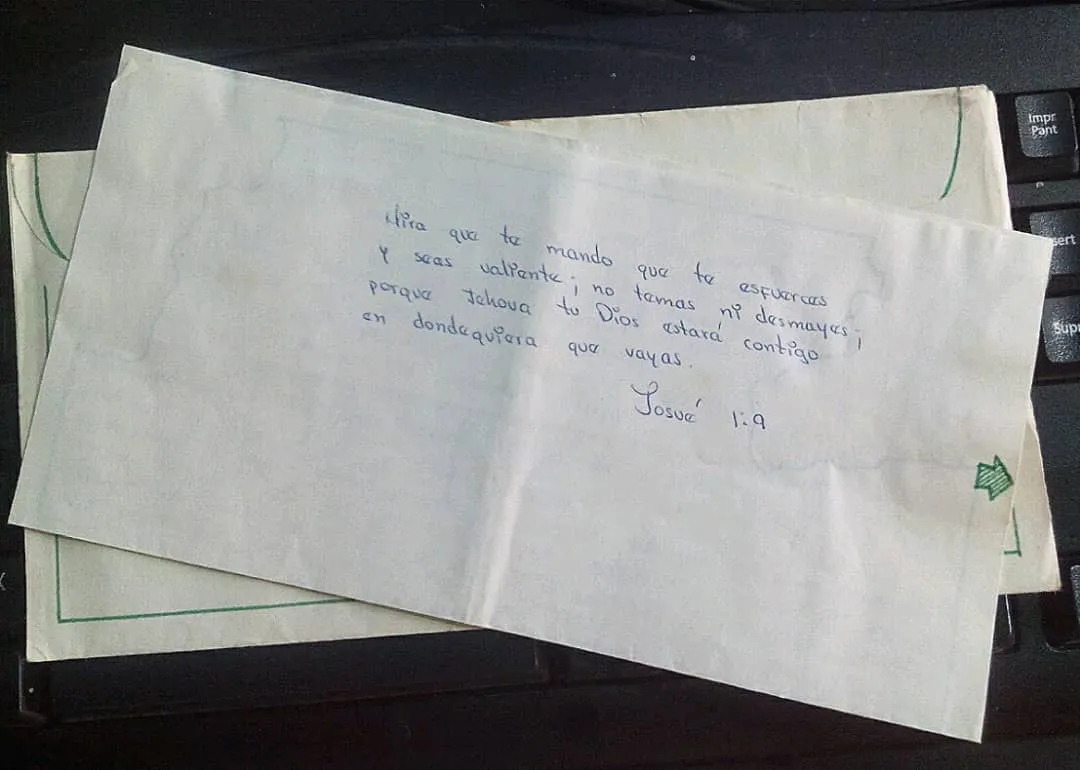 Mira que te mando que te esfuerces
y seas valiente; no temas ni desmayes;
porque Jehova tu Dios estará contigo
en dondequiera que vayas.
Josué 1:9
Impr
Pant
sert
Supr